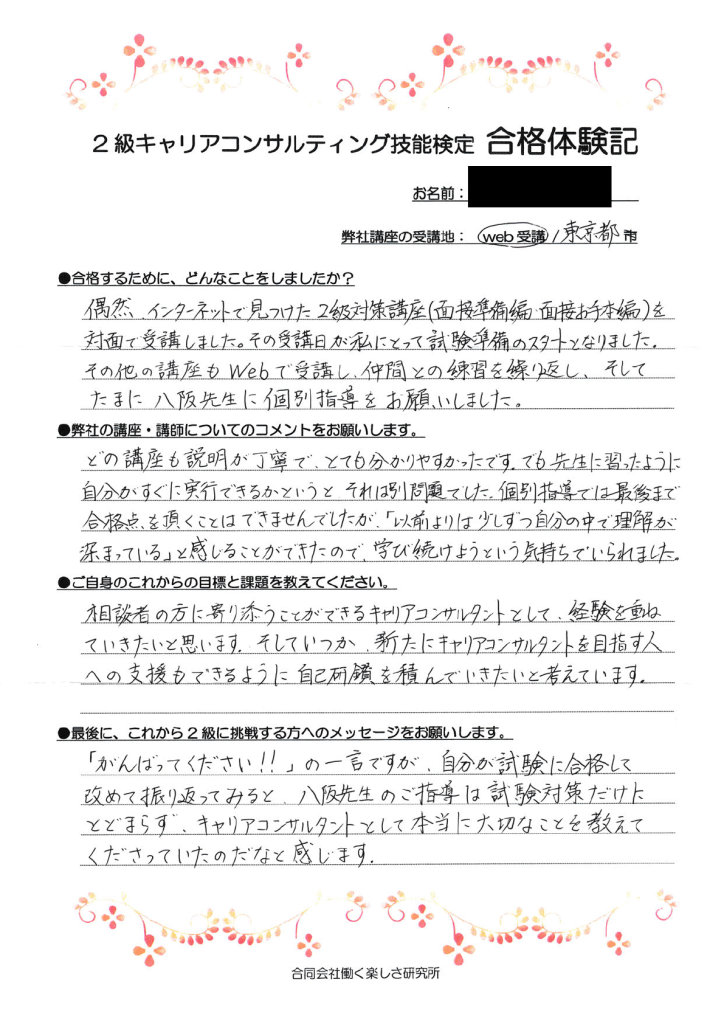 2級キャリアコンサルティング技能検定 合格体験記
お名前：
弊社講座の受講地： web受講 / 東京都 市
●合格するために、どんなことをしましたか？
偶然、インターネットで見つけた2級対策講座(面接準備編・面接お手本編)を
対面で受講しました。その受講日が私にとって試験準備のスタートとなりました。
その他の講座もWebで受講し、仲間との練習を繰り返し、そして
たまに八阪先生に個別指導をお願いしました。
●弊社の講座・講師についてのコメントをお願いします。
どの講座も説明が丁寧で、とても分かりやすかったです。でも先生に習ったように
自分がすぐに実行できるかというと それは別問題でした。個別指導では最後まで
合格点を頂くことはできませんでしたが、「以前よりは少しずつ自分の中で理解が
深まっている」と感じることができたので、学び続けようという気持ちでいられました。
●ご自身のこれからの目標と課題を教えてください。
相談者の方に寄り添うことができるキャリアコンサルタントとして、経験を重ね
ていきたいと思います。そしていつか、新たにキャリアコンサルタントを目指す人
への支援もできるように自己研鑽を積んでいきたいと考えています。
●最後に、これから2級に挑戦する方へのメッセージをお願いします。
「がんばってください!!」の一言ですが、自分が試験に合格して
改めて振り返ってみると、八阪先生のご指導は試験対策だけに
とどまらず、キャリアコンサルタントとして本当に大切なことを教えて
くださっていたのだなと感じます。
合同会社働く楽しさ研究所